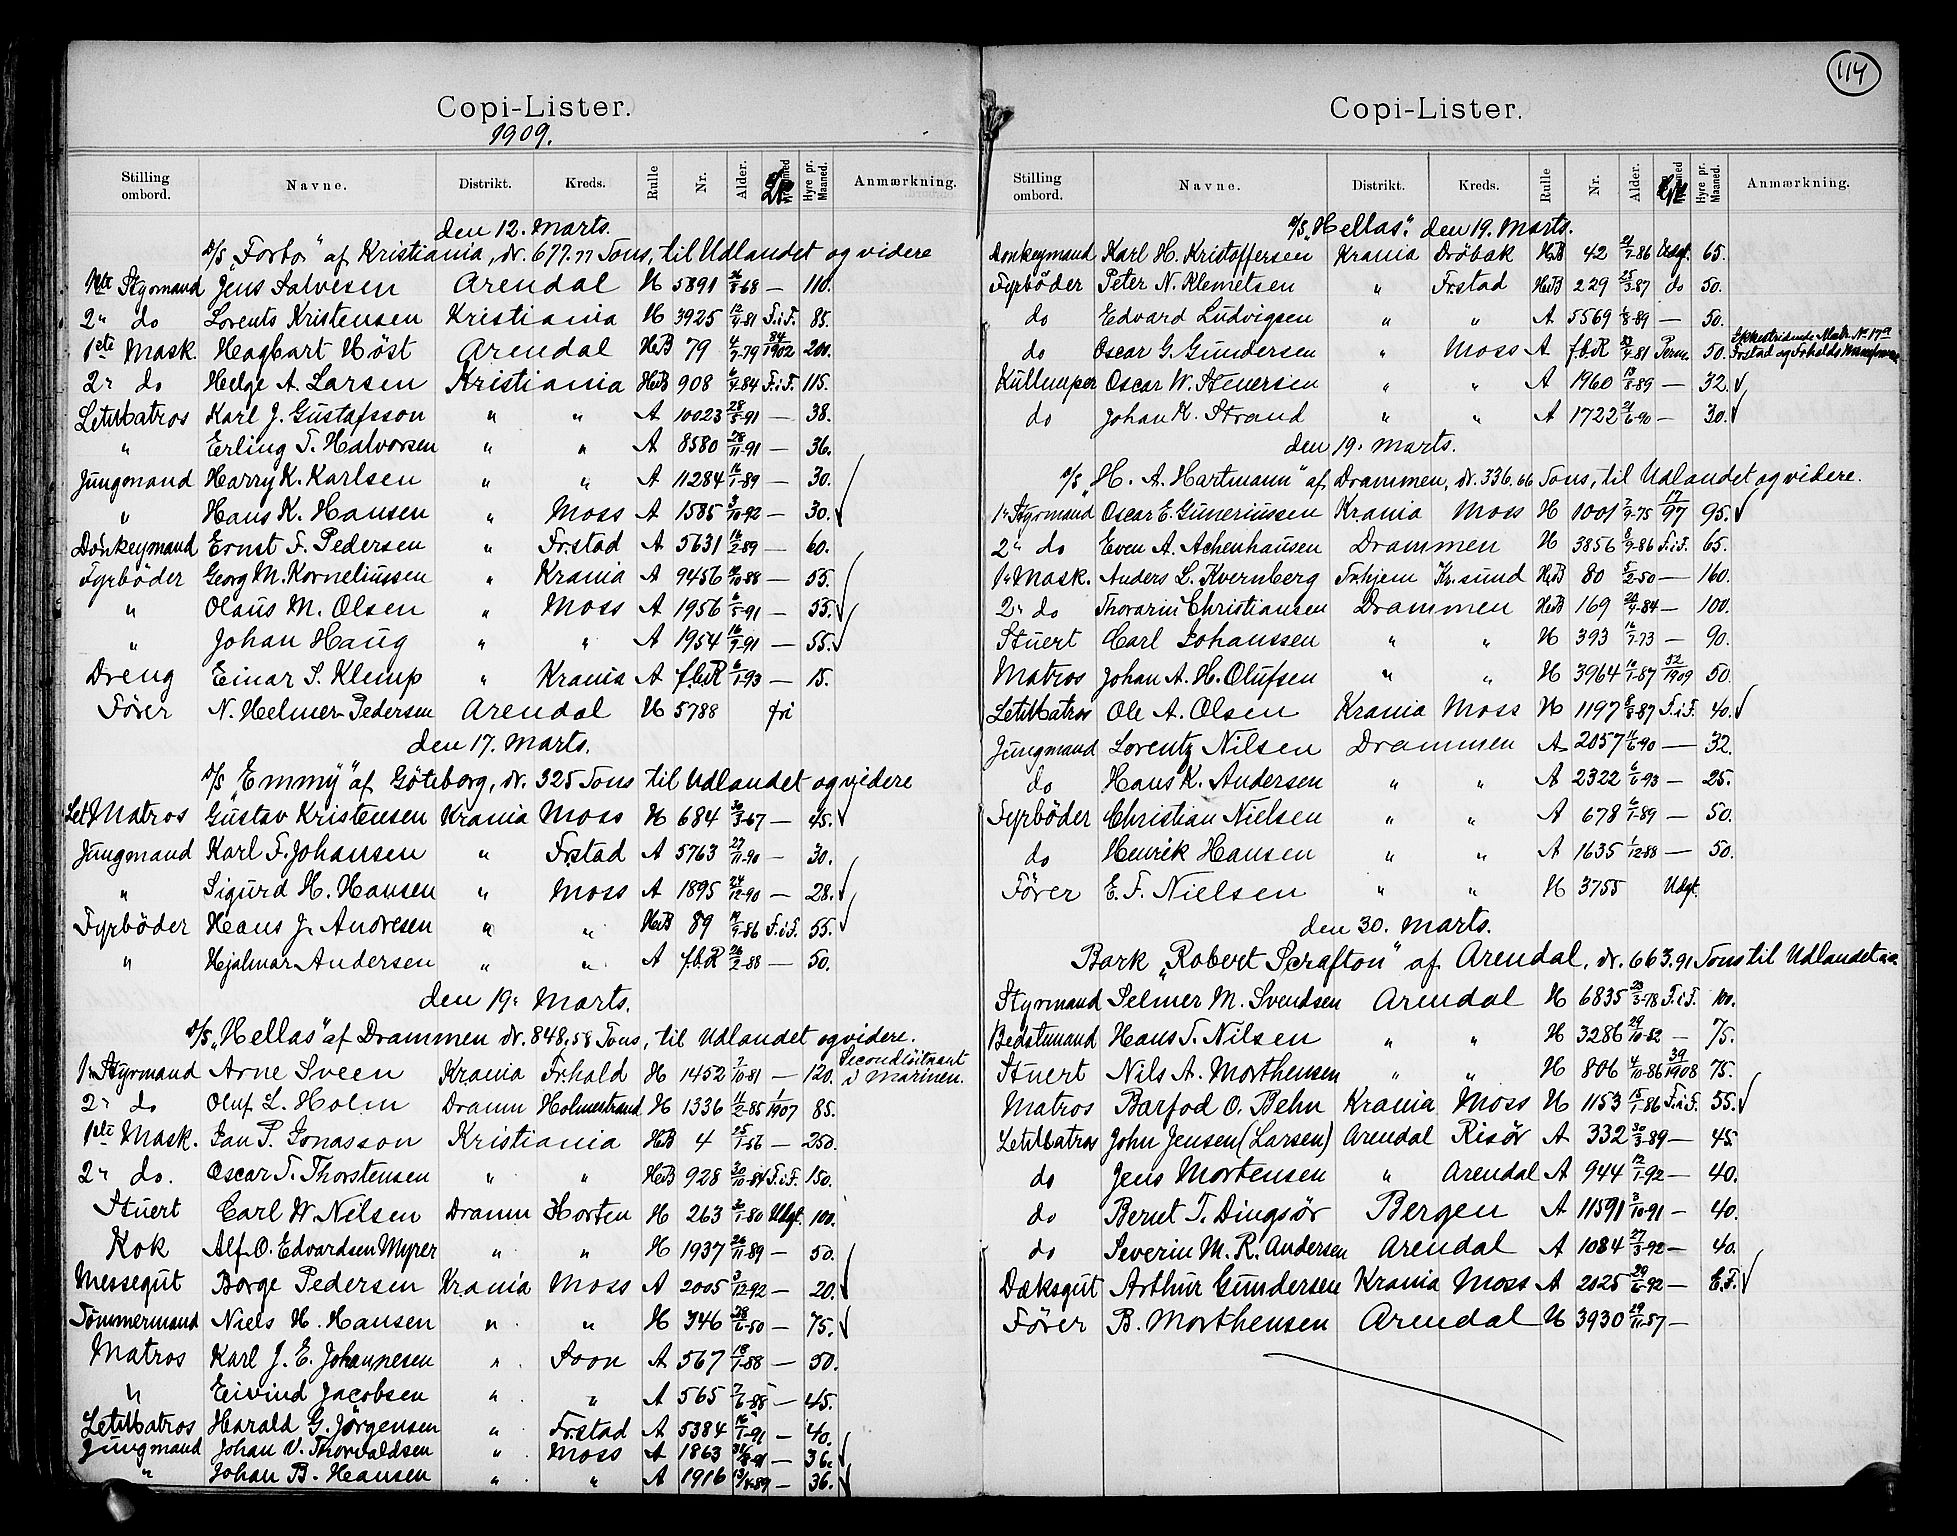 Copi-Lister.
1909.
Stilling ombord. Navne. Distrikt. Kreds. Rulle Nr. Alder. Hyre pr. Maaned. Anmærkning.
den 12. Marts.
D/S „Forto" af Kristiania, dr. 677.77 Tons, til Udlandet og videre
1ste Styrmand Jens Salvesen Arendal H 5891 -68 — 110.
2n do Lorents Kristensen Kristiania H 3925 12/4-81 F.i.F. 85.
1ste Mask. Hagbart Höst Arendal HvB 79 4/7-79 84/1902 200.
2n do Helge A. Larsen Kristiania HvB 908 6/4-84 F.i.F. 115.
LetMatros Karl J. Gustafsson " " A 10023 28/5-91 — 38.
" Erling T. Halvorsen " " A 8580 28/11-91 — 36.
Jungmand Harry K. Karlsen " " A 11284 16/1-89 — 30.
" Hans K. Hansen " Moss A 1585 3/10-92 — 30. ✓
Donkeymand Ernst F. Pedersen " Frstad A 5631 16/2-89 — 60.
Fyrböder Georg M. Korneliussen " Krania A 9456 /10-88 — 55.
" Olaus M. Olsen " Moss A 1956 6/5-91 — 55. ✓
" Johan Haug " " A 1954 16/9-91 — 55. ✓
Dreng Einar S. Klemp " Krania A f.b.R 6/1-93 — 15.
Förer N. Helmer Pedersen Arendal H 5788 fri
den 17. Marts.
D/S „Emmy" af Göteborg, dr. 325 Tons til Udlandet og videre
LetMatros Gustav Kristensen Krania Moss H 684 30/3-67 — 45. ✓
Jungmand Karl F. Johansen " Frstad A 5763 27/11-90 — 30.
" Sigurd H. Hansen " Moss A 1895 24/12-90 — 28. ✓
Fyrböder Hans J. Andresen " " HvB 89 19/9-86 F.i.F. 55. ✓
" Hjalmar Andersen " " A f.b.R 26/2-88 — 50.
den 19. Marts.
D/S „Hellas" af Drammen dr. 848,58 Tons, til Udlandet og videre.
1n Styrmand Arne Sveen Krania Fr.hald H 1452 7/10-81 — 120. Secondlöitnant i Marinen.
2n do Oluf L. Holm Dramn Holmestrand H 1336 11/2-85 1/1907 85.
1ste Mask. Jan P. Jonasson Kristiania HvB 4 25/1-56 — 250.
2n do. Oscar T. Thorstensen " " HvB 928 30/10-84 F.i.F. 150.
Stuert Carl W. Nilsen Dramn Horten H 263 2/1-80 Udgt. 100.
Kok Alf O. Edvardsen Myrer " " H 1937 26/11-89 — 50.
Messegut Borge Pedersen Krania Moss A 2005 3/12-92 — 20. ✓
Tömmermand Niels H. Hansen " " H 346 28/6-50 — 75. ✓
Matros Karl J. E. Johannesen " Soon A 567 18/1-88 — 50.
" Eivind Jacobsen " " A 565 7/6-88 — 45.
LetMatros Harald G. Jörgensen " Frstad A 5384 16/1-91 — 40.
Jungmand Johan V. Thorvaldsen " Moss A 1863 31/8-91 — 36. ✓
" Johan B. Hansen " " A 1916 13/4-89 — 36. ✓
114
Copi-Lister.
Stilling ombord. Navne. Distrikt. Kreds. Rulle Nr. Alder. Hyre pr. Maaned. Anmærkning.
D/S „Hellas". den 19. Marts.
Donkeymand Karl H. Kristoffersen Krania Dröbak HvB 42 21/7-86 Udgt. 65.
Fyrböder Peter N. Klemetsen " Frstad HvB 229 25/3-87 do 50.
do Edvard Ludvigsen " " A 5569 /8-89 — 50.
do Oscar G. Gundersen " Moss A f.b.R /4-81 Perm. 50.
Kullemper Oscar W. Stenersen " " A 1960 19/8-89 — 32. ✓
do Johan K. Strand " " A 1722 21/6-90 — 30. ✓
den 19. Marts.
D/S „H. A. Hartmann" af Drammen, dr. 336,66 Tons, til Udlandet og videre.
1n Styrmand Oscar E. Guneriussen Krania Moss H 1001 7/9-75 17/97 95. ✓
2n do Even A. Achenhausen Drammen H 3856 8/9-86 F.i.F. 65.
1n Mask. Anders L. Kvernberg Trhjem Kr.sund HvB 80 5/2-50 — 160.
2n do Thorarin Christiansen Drammen HvB 169 24/4-84 — 100.
Stuert Carl Johanssen " " H 393 16/7-73 — 90.
Matros Johan A. H. Olufsen " " H 3964 10/1-87 52/1909 50.
LetMatros Ole A. Olsen Krania Moss H 1197 8/8-87 F.i.F. 40. ✓
Jungmand Lorentz Nilsen Drammen A 2057 11/6-90 — 32.
do Hans K. Andersen " " A 2322 6/6-93 — 25.
Fyrböder Christian Nielsen " " A 678 6/1-89 — 50.
do Henrik Hansen " " A 1635 1/12-88 — 50.
Förer E. F. Nielsen " " H 3755 Udgt.
den 30. Marts.
Bark „Robert Scrafton" af Arendal, dr. 663,91 Tons til Udlandet
Styrmand Selmer M. Svendsen Arendal H 6835 23/3-78 F.i.F. 100.
Bedstemand Hans T. Nilsen " " H 3286 29/10-52 — 75.
Stuert Nils A. Morthensen " " H 806 4/10-86 39/1908 75.
Matros Barfod O. Behn Krania Moss H 1153 15/1-86 F.i.F. 55. ✓
LetMatros John Jensen (Larsen) Arendal Risör A 332 30/3-89 — 45.
do Jens Mortensen " Arendal A 944 12/1-92 — 40.
do Bernt T. Dingsör Bergen A 11591 3/10-91 — 40.
do Severin M. R. Andersen Arendal A 1084 27/3-92 — 40.
Dæksgut Arthur Gundersen Krania Moss A 2025 29/6-92 — E.F. ✓
Förer B. Morthensen Arendal H 3930 29/11-57 —